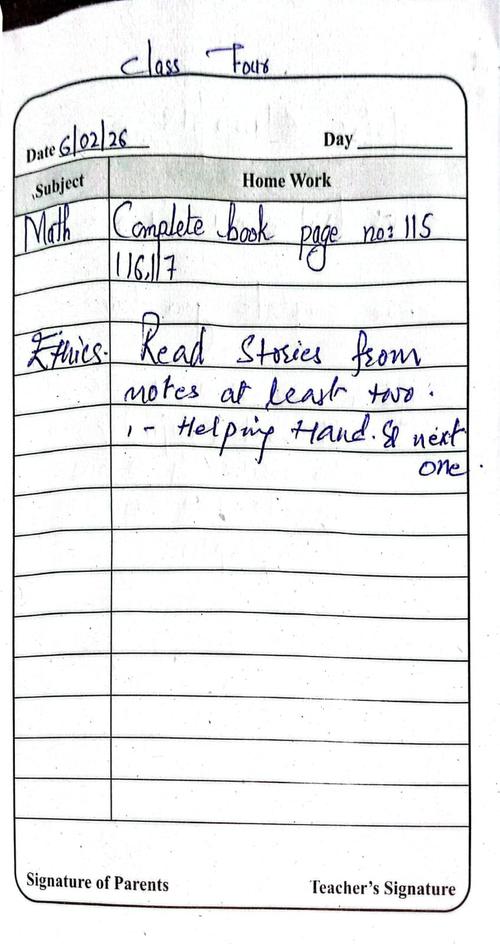 Class Four
Date 6/02/26 Day
Subject Home Work
Math Complete book page no: 115
116,117
Ethics. Read Stories from
notes at least two.
1- Helping Hand. & next
one.
Signature of Parents Teacher's Signature